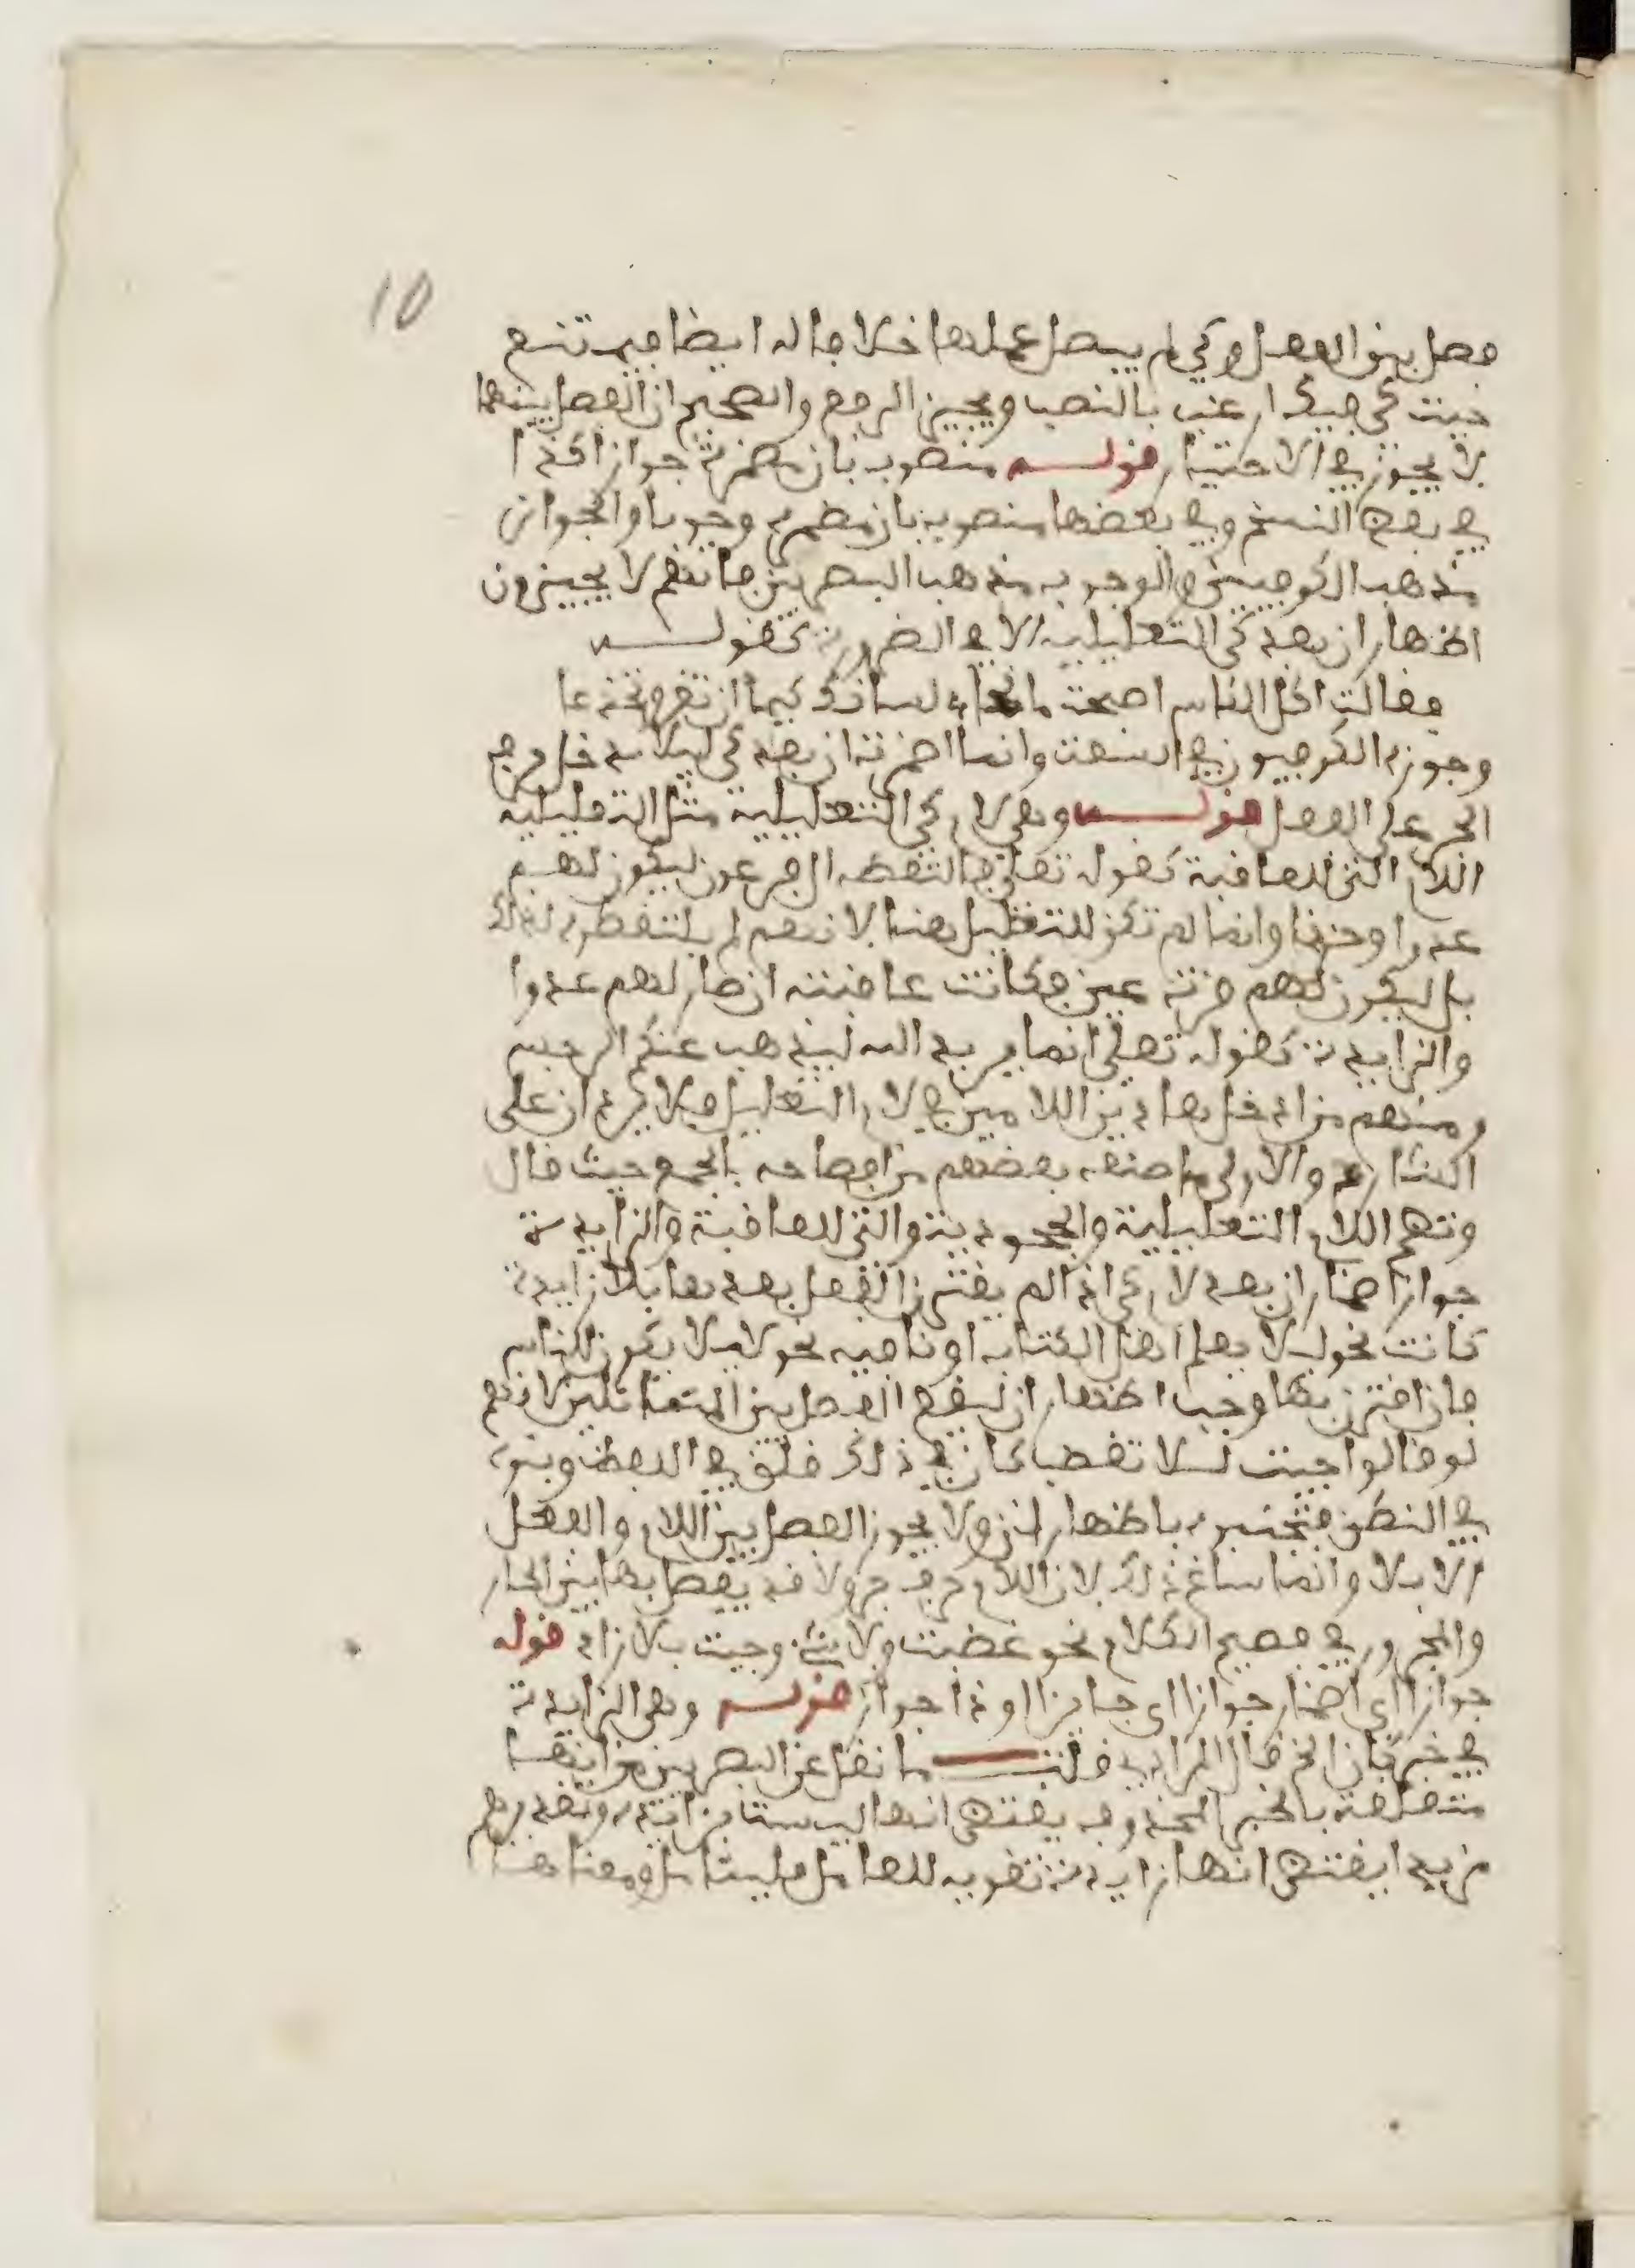 10
فصل بين الفعل وكي لم يبطل عملها خلافا له ايضا فيمتنع
جيت كي فيك ارغب بالنصب ويجيز الرفع والصحيح ان الفصل بينهما
لا يجوز في الاختيار قوله منصوب بان مضمرة جوازا كذا
في بعض النسخ وفي بعضها منصوب بان مضمرة وجوبا والجواز
مذهب الكوفيين والوجوب مذهب البصريين فانهم لا يجيزون
اظهار ان بعد كي التعليلية الا في الضرورة كقوله
فقالت اكل الناس اصبحت مانحا لسانك كيما ان تغر وتخدعا
وجوزه الكوفيون في السعة وانما اضمرت ان بعد كي ليلا يدخل حرف
الجر على الفعل قوله وهي لام كي التعليلية مثل التعليلية
اللام التي للعاقبة كقوله تعلى فالتقطه ال فرعون ليكون لهم
عدوا وحزنا وانما لم تكن للتعليل هنا لانهم لم يلتقطوه لذلك
بل ليكون لهم قرة عين فكانت عاقبته ان صار لهم عدوا
والزايدة كقوله تعلى انما يريد الله ليذهب عنكم الرجس
ومنهم من ادخل هاذين اللامين في لام التعليل فلا يردان على
الشارح والاولى ما صنعه بعضهم من افصاحه بالجمع حيث قال
وتضم اللام التعليلية والجحودية والتي للعاقبة والزايدة
جواز اضمار ان بعد لام كي اذا لم يقترن الفعل بعدها بلا زايدة
كانت نحو ليلا يعلم اهل الكتاب او نافية نحو ليلا يكون للناس
فان اقترن بها وجب اظهار ان ليقع الفصل بين المتماثلين لانهم
لو قالوا جيت للا تغضب كان في ذلك قلق في اللفظ ونبوة
في النطق فتجنبوه باظهار ان ولا يجوز الفصل بين اللام والفعل
الا بلا وانما ساغ ذلك لان اللام حرف جر ولا قد يفصل بها بين الجار
والمجرور في فصيح الكلام نحو غضبت ولا شيء وجيت بلا زاد قوله
جوازا اي اضمار جوازا اي جايزا او ذا جواز قوله وهي الزايدة
في خبر كان الخ قال المرادي قلت ما نقل عن البصريين من انها
متعلقة بالخبر المحذوف يقتضي انها ليست بزايدة وتقديرهم
مريدا يقتضي انها زايدة تقوية للعامل فليتامل ومعناها